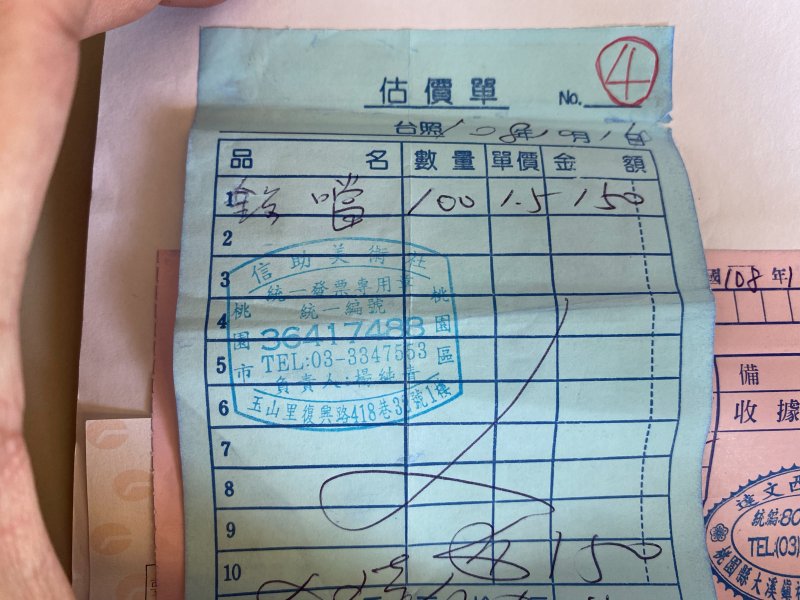 估價單 No. 4
台照 108年10月16日
品名 數量 單價 金額
1 鈴噹 100 1.5 150
2
信助美術社
3
統一發票專用章
統一編號
4
36417488
桃園市 桃園區
5
TEL:03-3347553
負責人:楊純吉
6
玉山里復興路418巷3號1樓
7
8
9
10 150
國108年1
備
收據
達文西
統編:80
TEL:(03)
桃園縣大溪鎮